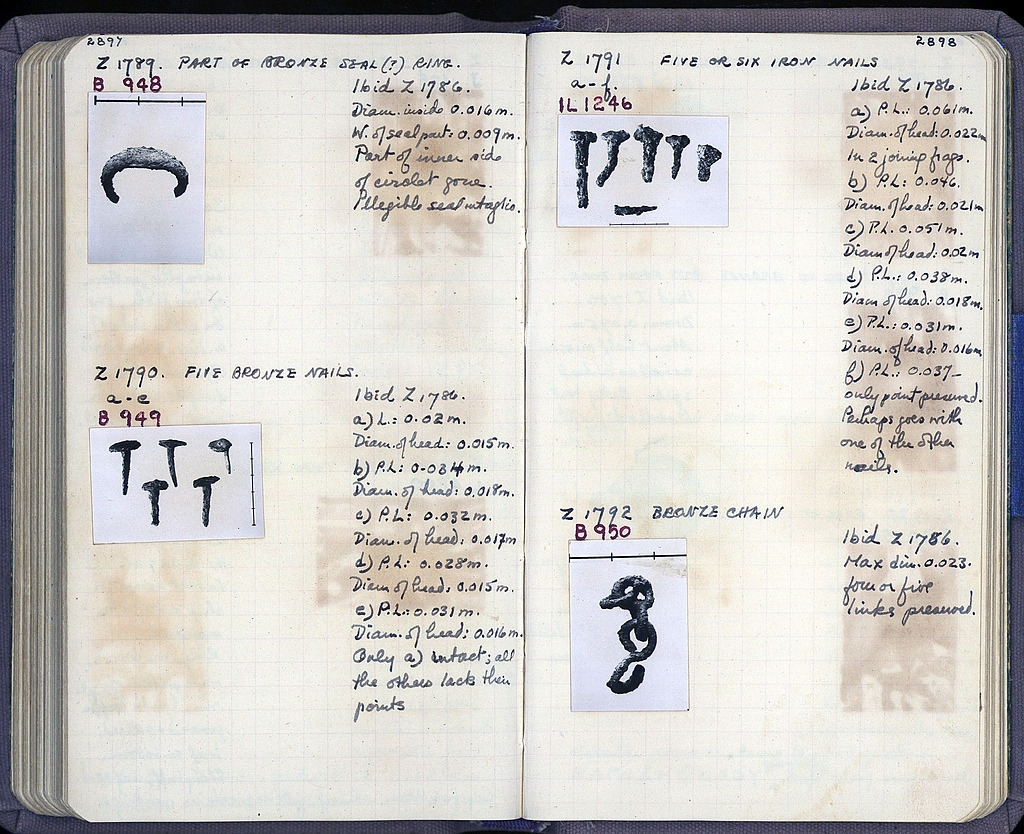 2897
Z 1789. PART OF BRONZE SEAL (?) RING.
B 948
Ibid Z 1786.
Diam. inside 0.016m.
W. of seal part: 0.009m.
Part of inner side
of circlet gone.
Illegible seal intaglio.
Z 1790. FIVE BRONZE NAILS.
a-e
B 949
Ibid Z 1786.
a) L: 0.02m.
Diam. of head: 0.015m.
b) P.L: 0.034m.
Diam. of head: 0.018m.
c) P.L: 0.032m.
Diam. of head: 0.017m
d) P.L: 0.028m.
Diam. of head: 0.015m.
e) P.L: 0.031m.
Diam. of head: 0.016m.
Only a) intact; all
the others lack their
points
2898
Z 1791 FIVE OR SIX IRON NAILS
a-f.
IL 1246
Ibid Z 1786.
a) P.L: 0.061m.
Diam. of head: 0.022m
In 2 joining frags.
b) P.L: 0.046.
Diam. of head: 0.021m
c) P.L. 0.051m.
Diam of head: 0.02m
d) P.L.: 0.038m.
Diam of head: 0.018m.
e) P.L.: 0.031m.
Diam. of head: 0.016m
f) P.L: 0.037-
only point preserved.
Perhaps goes with
one of the other
nails.
Z 1792 BRONZE CHAIN
B 950
Ibid Z 1786.
Max dim. 0.023.
four or five
links preserved.